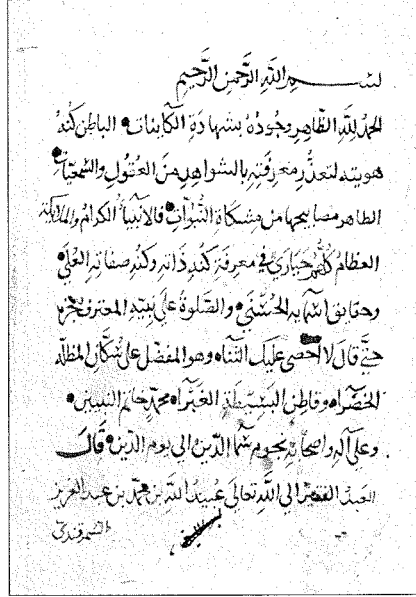 بسم الله الرَّحمن الرَّحيم
الحمدُ للهِ الظّاهِرِ وجُودُهُ بشهادَةِ الكاينات الباطِنِ كُنهُ
هويته لتعذُّرِ معرفَتِه بالشواهِدِ مِنَ العقُولِ والسَّمعيّات
الظاهر مصابيحها من مشكاة النُّبوّات فالأنبيآ الكرامُ والملايكة
العظامُ كلُّهم حيارَي في معرفة كنهِ ذاتهِ وكنهِ صفاتهِ العُلَي
وحقايق اسمآيه الحُسْنَي والصَّلوةُ علي نبيّه المعترف بعجزه
حتَّي قال لا احصي عليك الثَّناء وهو المفضّل علي سُكّان المظلَّه
الخضراء وقاطِنِ البَسِيطَةِ الغَبْراء محمَّدٍ خاتم النبيين
وعلي آله واصحابه نجوم سَمآ الدّين الي يوم الدّين قالَ
العبدُ الفقيرُ الي اللهِ تعالَي عُبيدُ اللهِ بن محمَّد بن عبد العزيز
السمرقندي